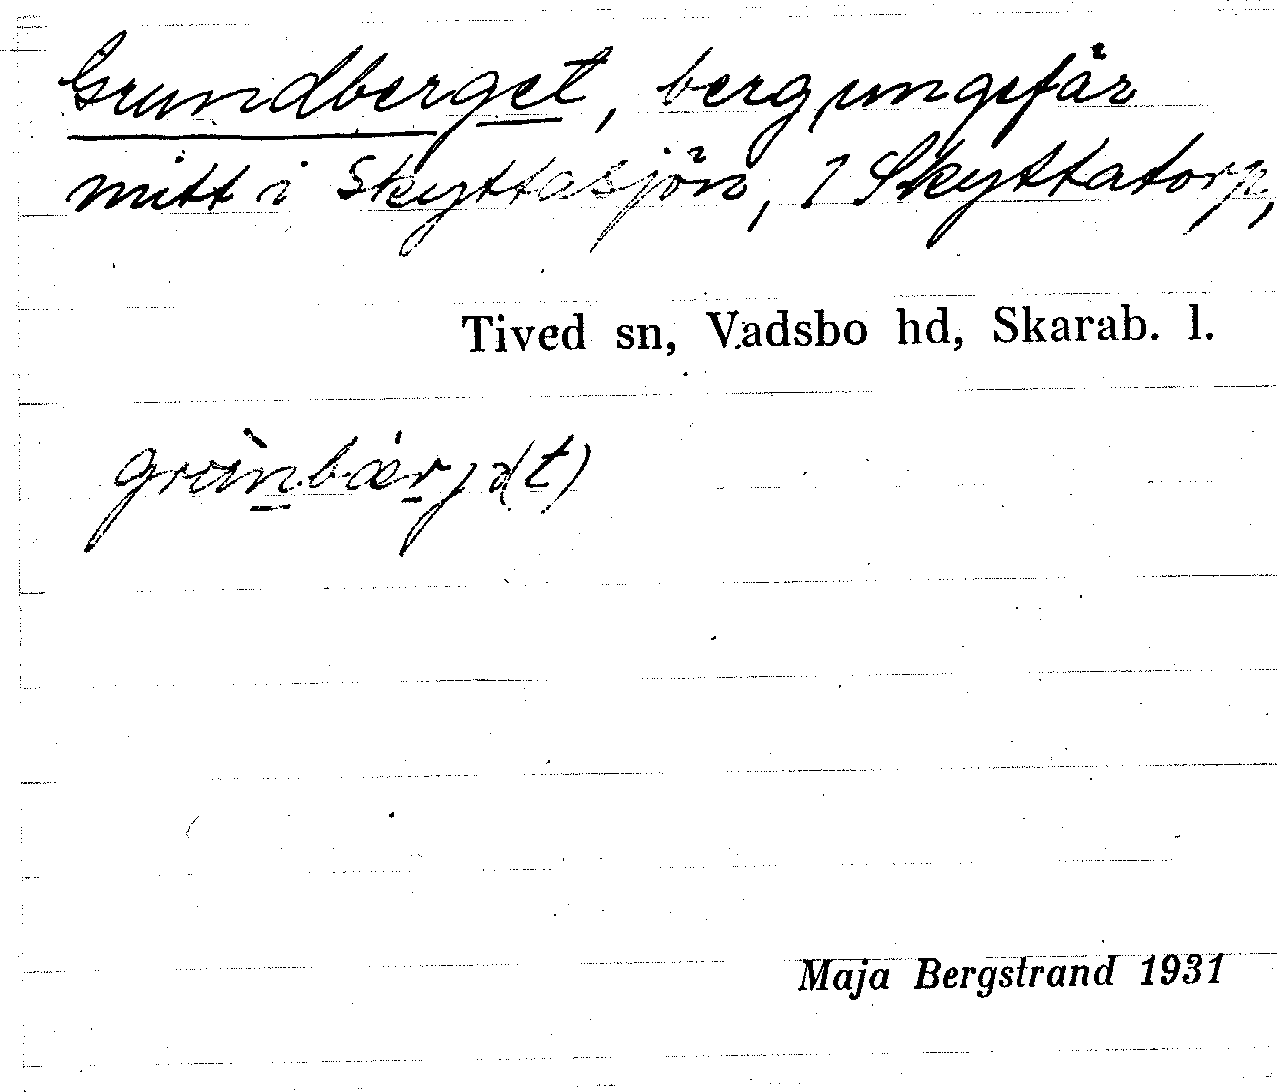 Grundberget, berg ungefär
mitt i Skyttasjön, 1 Skyttatorp,
Tived sn, Vadsbo hd, Skarab. l.
Maja Bergstrand 1931